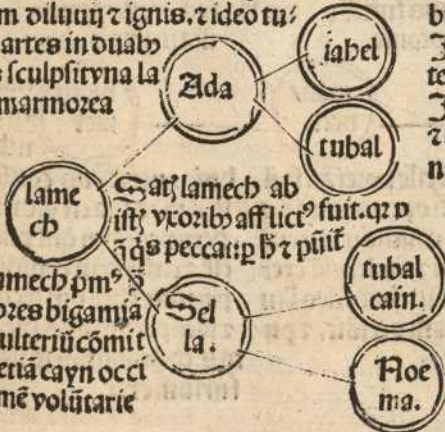 m diluuij ⁊ ignis. ⁊ ideo tu⸗
artes in duabꝫ
s sculpsit vna la
marmorea
Ada
iabel
tubal
lame
ch
Satꝫ lamech ab
istꝫ vxoribꝫ afflictꝰ fuit. qꝛ p
q̄s peccat: p ⁊ pūit
amech pm̄ꝰ
ores bigamia
ulteriū cōmit
etiā cayn occi
mē volūtarie
Sel
la.
tubal
cain.
Noe
ma.